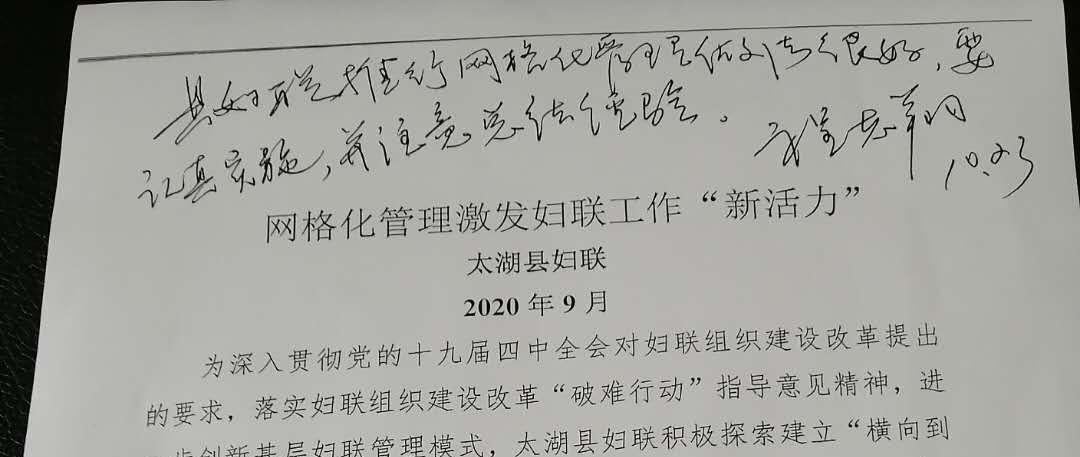 县妇联推行网格化管理是做法很好，要
认真实施，并注意总结经验。
10.23
网格化管理激发妇联工作“新活力”
太湖县妇联
2020年9月
为深入贯彻党的十九届四中全会对妇联组织建设改革提出
的要求，落实妇联组织建设改革“破难行动”指导意见精神，进
步创新基层妇联管理模式，太湖县妇联积极探索建立“横向到